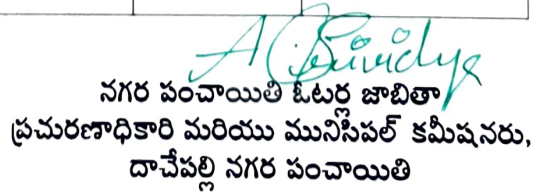 నగర పంచాయితి ఓటర్ల జాబితా
ప్రచురణాధికారి మరియు మునిసిపల్ కమీషనరు,
దాచేపల్లి నగర పంచాయితి